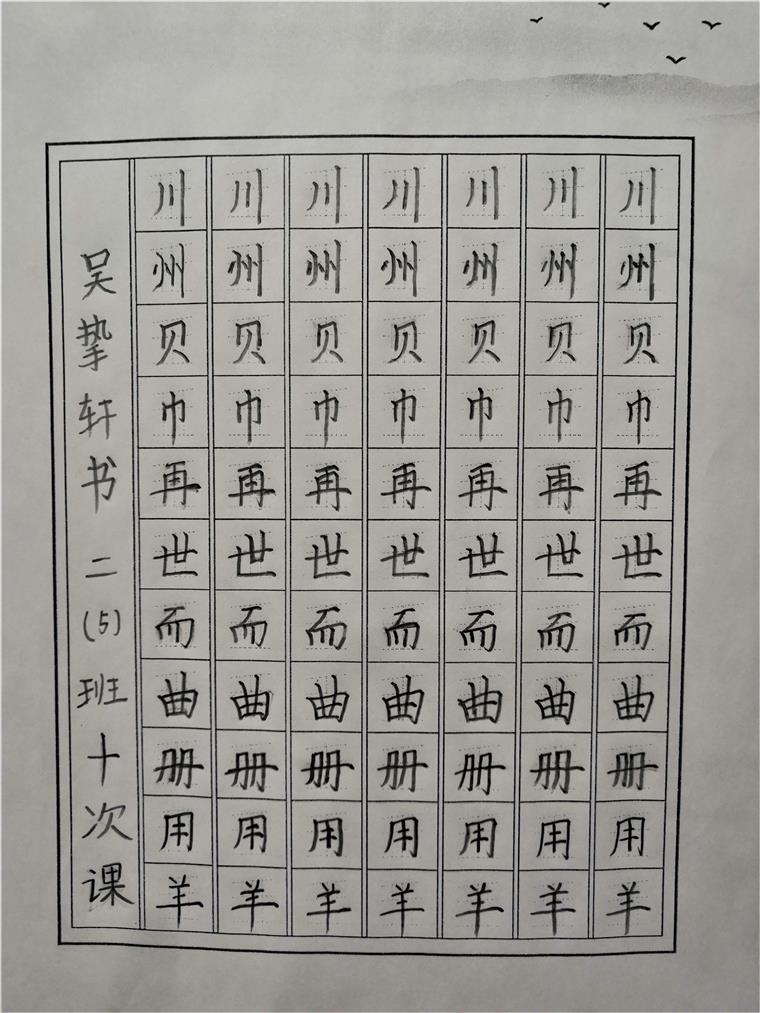 川川川川川川川
州州州州州州州
贝贝贝贝贝贝贝
巾巾巾巾巾巾巾
再再再再再再再
世世世世世世世
而而而而而而而
曲曲曲曲曲曲曲
册册册册册册册
用用用用用用用
羊羊羊羊羊羊羊
吴挚轩书 二(5)班十次课